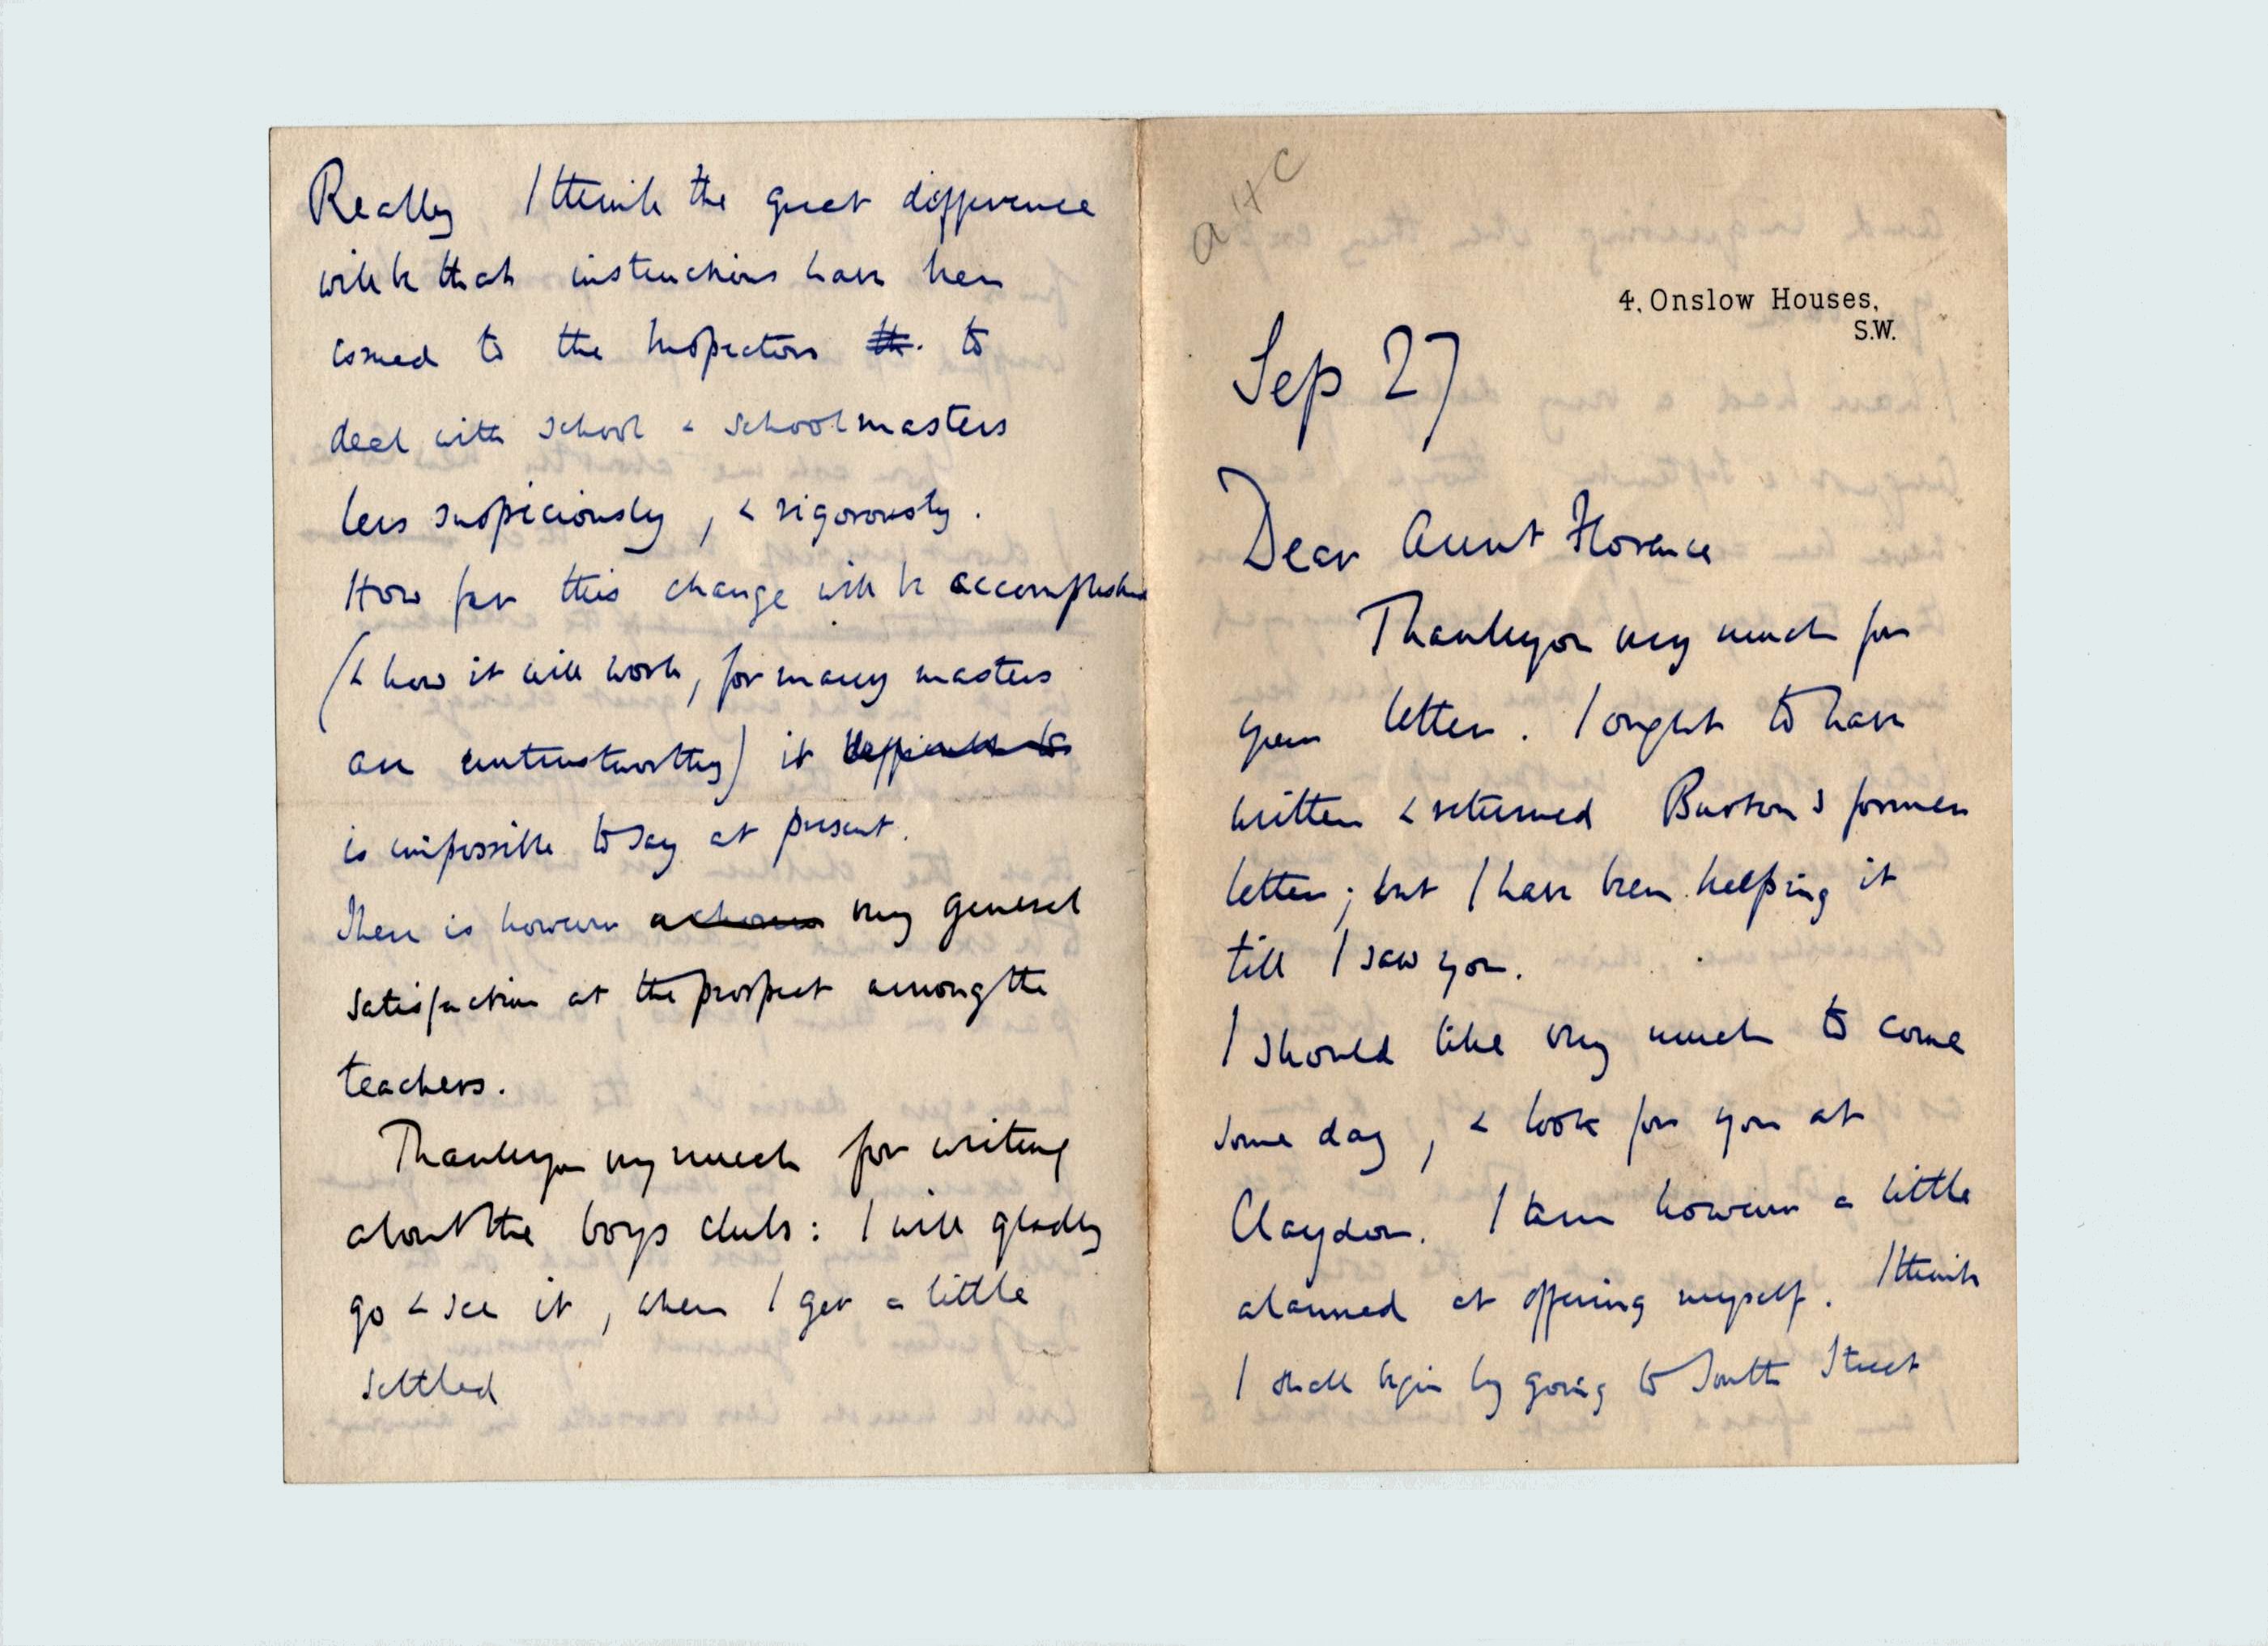 a H C
4, Onslow Houses,
S.W.
Sep 27
Dear Aunt Florence
Thankyou very much for
your letter. I ought to have
written & returned Burton's former
letter; but I have been keeping it
till I saw you.
I should like very much to come
some day, & look for you at
Claydon. I am however a little
alarmed at offering myself. I think
I shall begin by going to South Street
Really I think the great difference
will be that instructions have been
issued to the Inspectors th. to
deal with school & schoolmasters
less suspiciously, & rigorously.
How far this change will be accomplished
(& how it will work, for many masters
are untrustworthy) it difficult to
is impossible to say at present.
There is however a chorus very general
satisfaction at the prospect among the
teachers.
Thankyou very much for writing
about the boys clubs: I will gladly
go & see it, when I get a little
settled